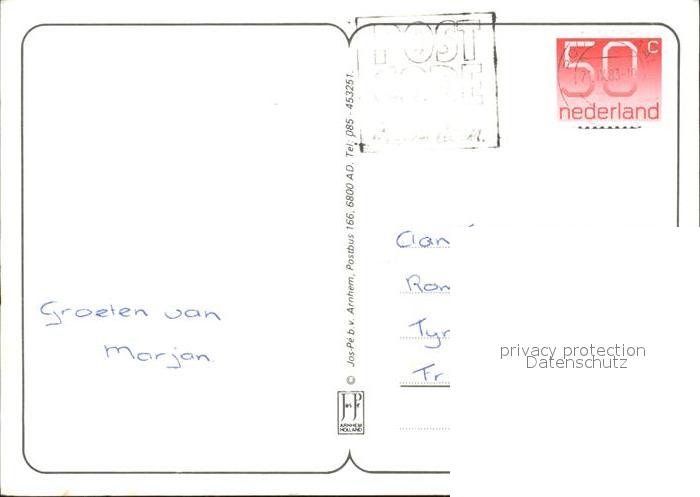 POST
CODE
50 c
nederland
Groeten van
Marjan
© Jos-Pé b.v. Arnhem, Postbus 166, 6800 AD. Tel: 085 - 453251.
Clan
Ron
Tyr
Fr
privacy protection
Datenschutz
Jos Pé
ARNHEM
HOLLAND